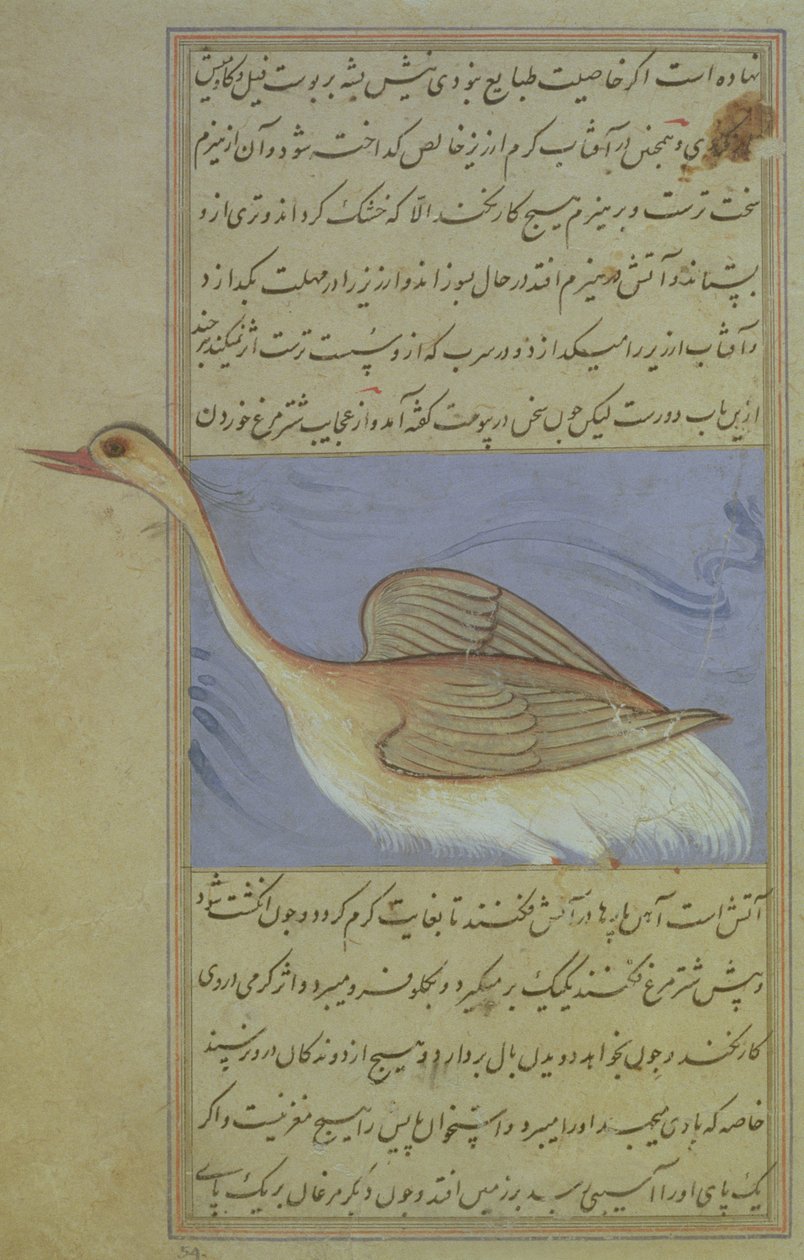 نهاده است اکر خاصیت طبایع نبودی نیش پشه بر پوست فیل و کاومیش
کار نکردی و همچنین در آفتاب کرم ارزیز خالص کداخته شود و آن از هیزم
سخت ترست و بر هیزم هیچ کار نکند الّا که خشک کرداند و تری ازو
بستاند و آتش در هیزم افتد در حال بسوزاند و ارزیز را در مهلت بکدازد
و آفتاب ارزیز را میکدازد و در سرب که ازو سُست ترست اثر نمیکند هر چند
ازین باب دورست لیکن چون سخن درپیوست کفته آمد و از عجایب شتر مرغ خوردن
آتش است آهن پارها در آتش فکنند تا بغایت کرم کردد و چون انکشت شود
و پیش شتر مرغ فکنند یکیک بر میکیرد و بکلو فرو میبرد و اثر کرمی در وی
کار نکند و چون بخواهد دویدن بال بردارد و هیچ از دوندکان درو نرسند
خاصه که بادی میجهد و اورا میبرد و استخوان پایش را هیچ مغز نیست و اکر
یک پای اورا آسیبی رسد بر زمین افتد و چون دیکر مرغان بر یک پای
54